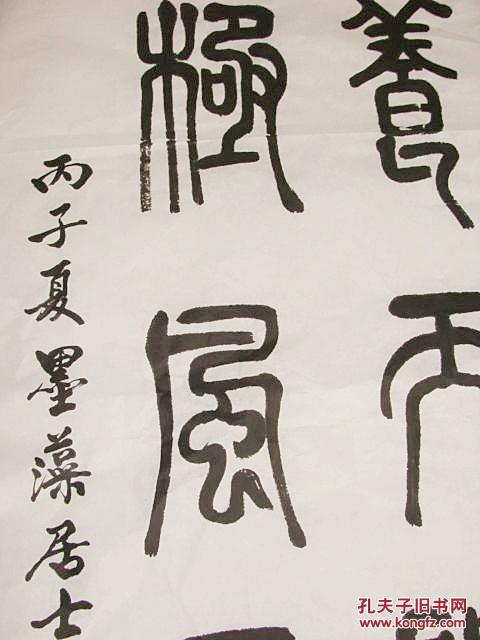 養天
極風
丙子夏墨藻居士
孔夫子旧书网
www.kongfz.com